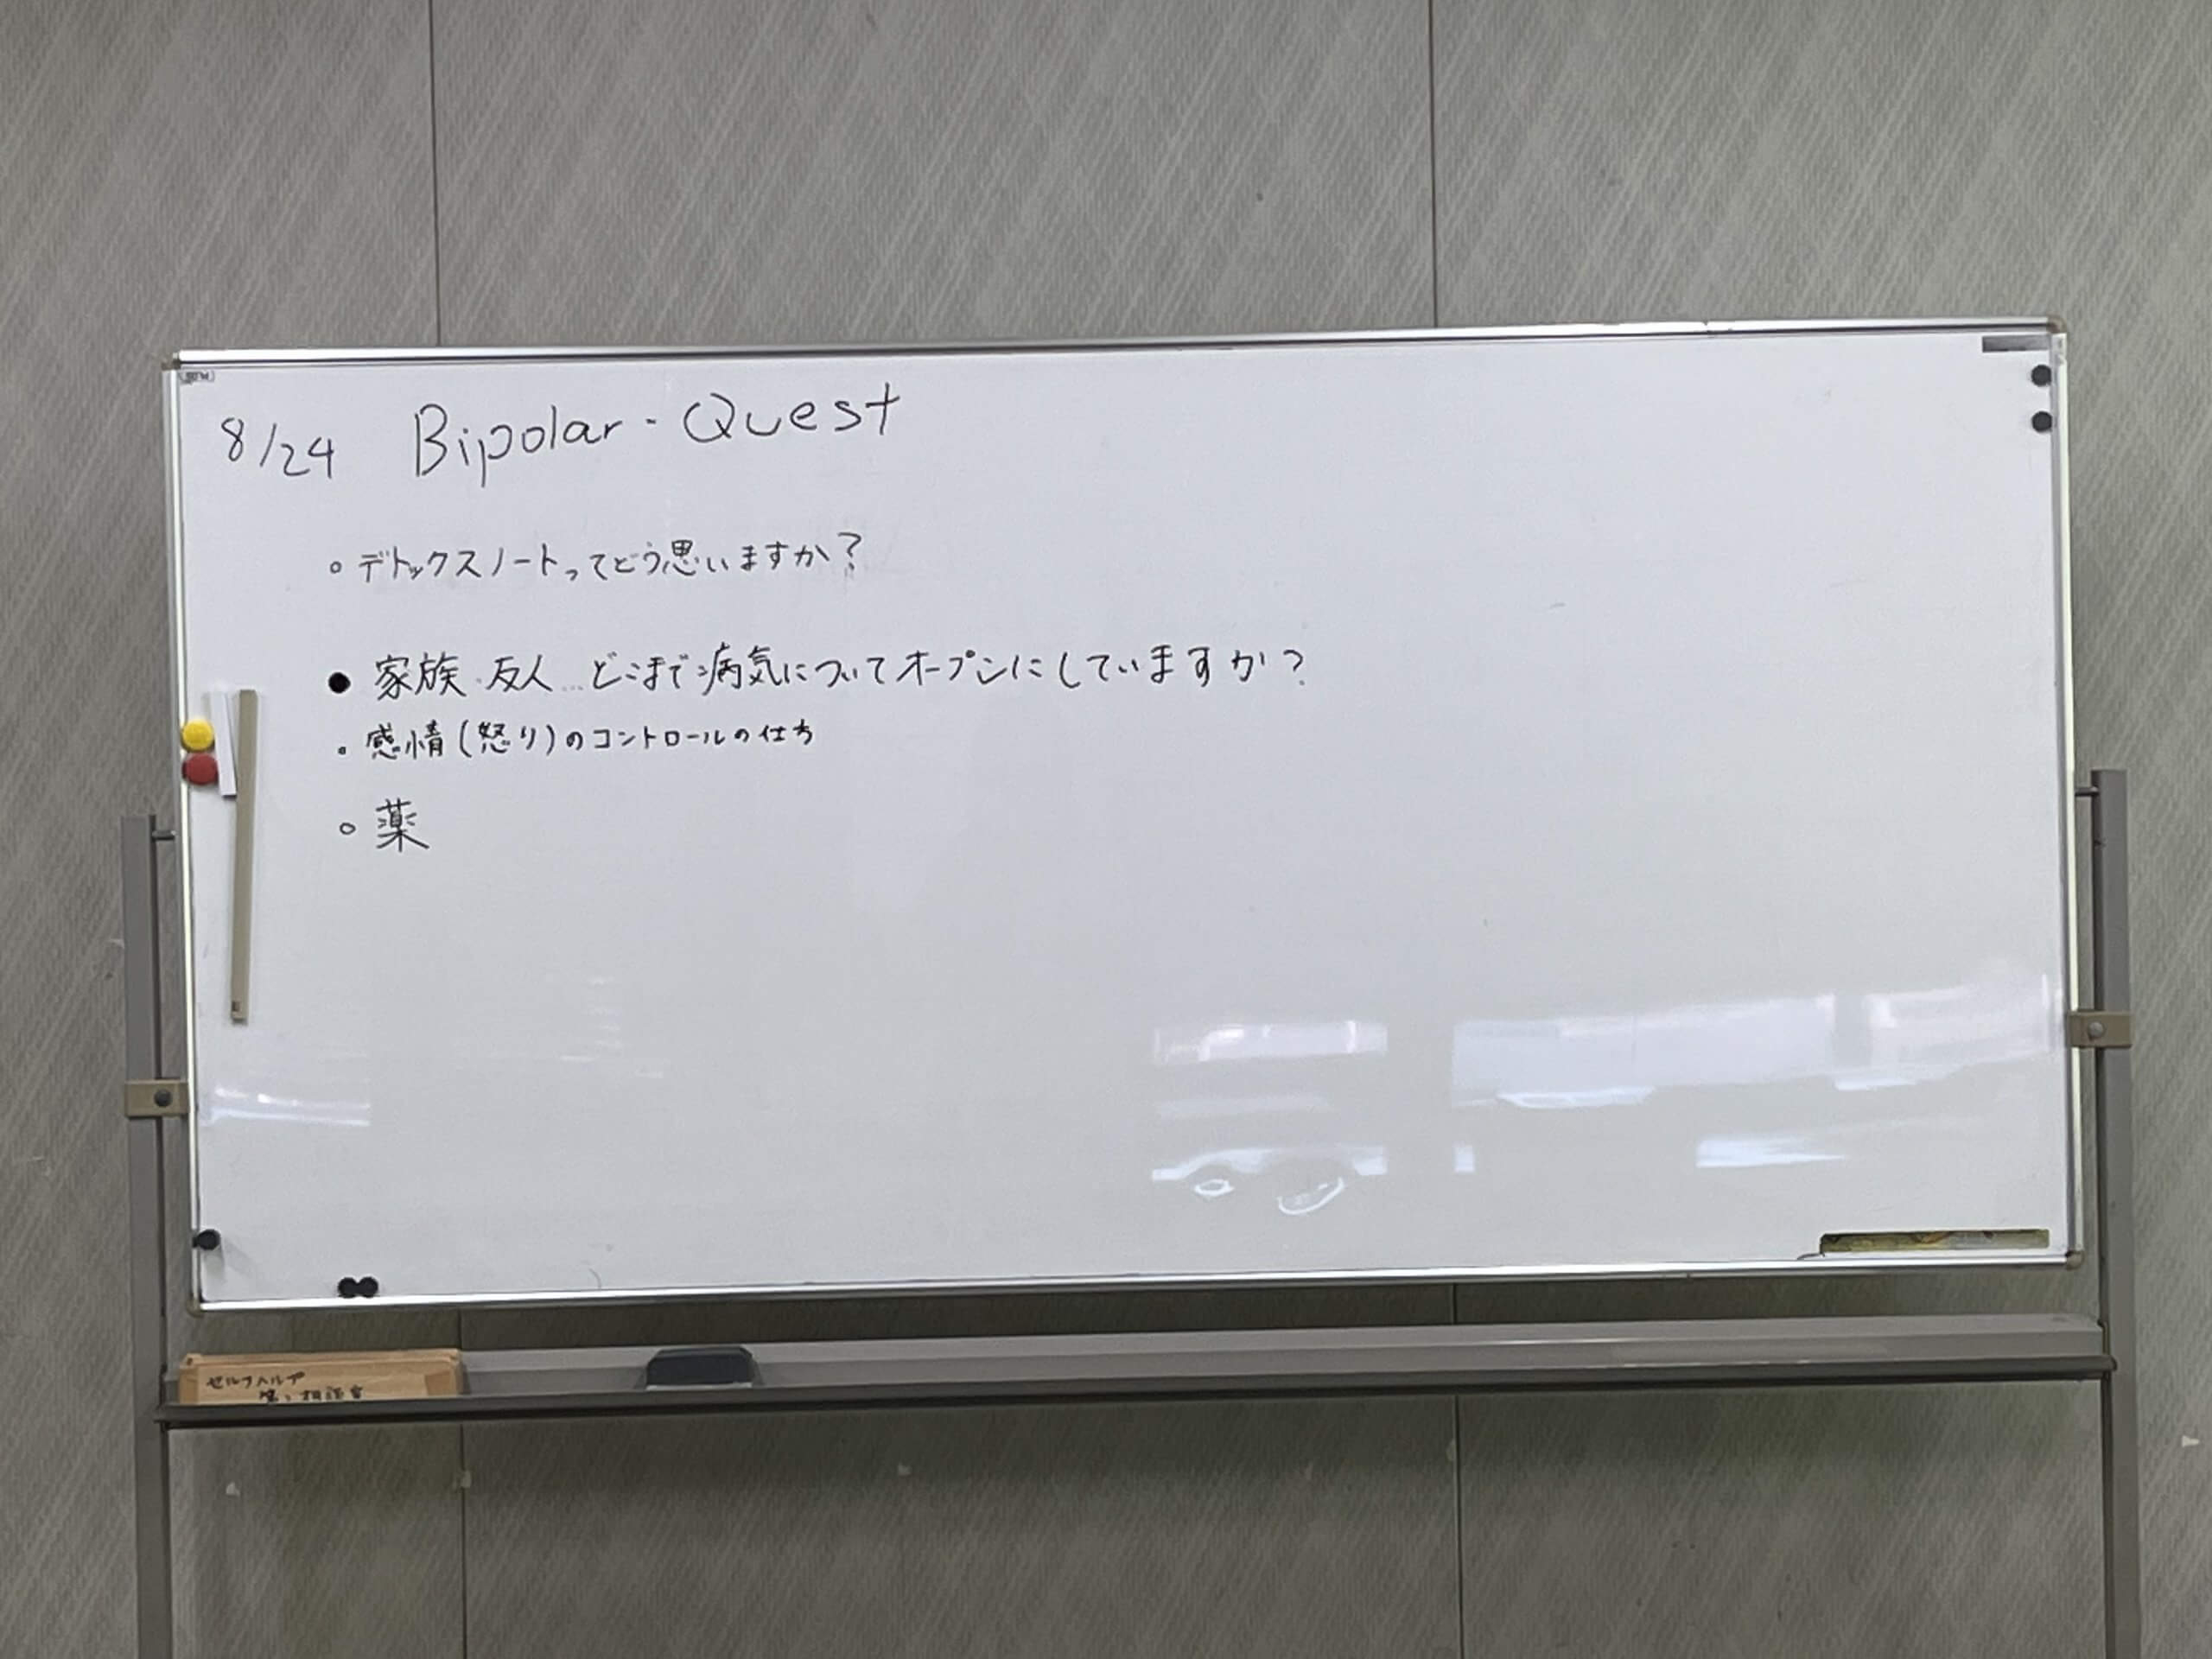 8/24 Bipolar-Quest
○ デトックスノートってどう思いますか?
● 家族・友人…どこまで病気についてオープンにしていますか?
・感情(怒り)のコントロールの仕方
○ 薬
セルフヘルプ
相談室